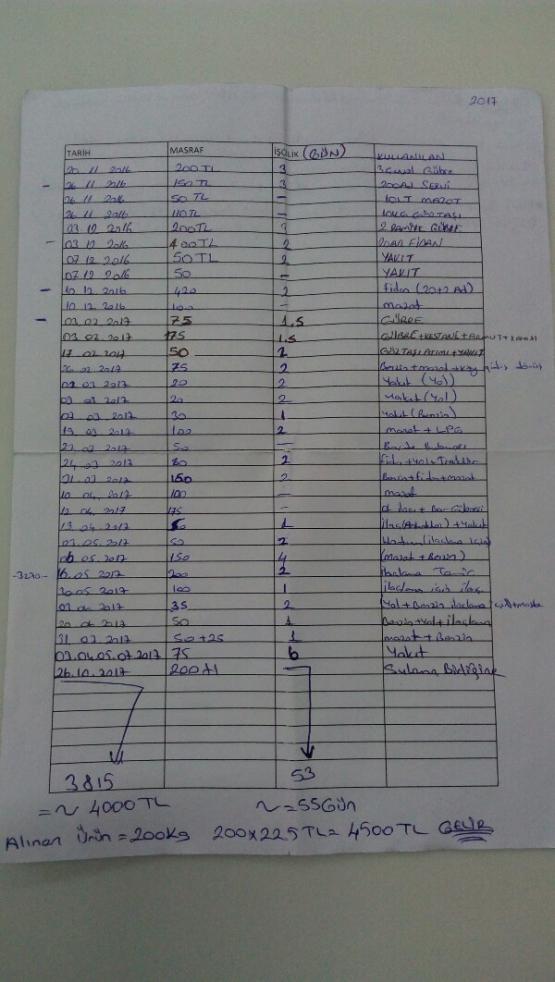 2017
TARİH MASRAF İŞÇİLİK (GÜN) KULLANILAN
20 11 2016 200 TL 3 3 Gübre
26 11 2016 150 TL 3 200 Ad
26 11 2016 50 TL - 10 LT MAZOT
26 11 2016 110 TL - GÖZTAŞI
03 12 2016 200TL 2 GÜBRE
03 12 2016 400TL 2 FİDAN
07 12 2016 50 TL 2 YAKIT
07 12 2016 50 - YAKIT
10 12 2016 420 2 Fidan (20+2 Ad)
10 12 2016 100 - mazot
03.02.2017 75 1.5 GÜBRE
03.02.2017 175 1.5 GÜBRE+KESTANE+ARMUT+
17.02.2017 50 2 GÖZTAŞI ATIMI+YAKIT
26 02 2017 75 2 Benzin+mazot+
02 03 2017 20 2 Yakıt (Yol)
03 03 2017 20 2 Yakıt (Yol)
03 2017 30 1 Yakıt (Benzin)
19 03 2017 100 2 mazot + LPG
03 2017 50 -
24 03 2017 80 2 Fidan+Yol+Traktör
31 03 2017 150 2 Benzin+Fidan+mazot
10 04 2017 100 - mazot
12 04 2017 175 -
13.04.2017 1 + Yakıt
05.2017 50 2 (ilaçlama için)
06.05.2017 150 4 (mazot + Benzin)
-3270- 16.05 2017 200 2 ilaçlama Tamir
30.05 2017 100 1 ilaçlama için ilaç
06 2017 35 2 Yol+Benzin ilaçlama
20 06 2017 50 1 Benzin+Yol+ilaçlama
31 03 2017 50 +25 1 mazot + Benzin
03.04.05.07.2017 75 6 Yakıt
26.10.2017 200 tl Sulama Birliğine
3815 53
=~ 4000 TL ~=55Gün
Alınan Ürün =200Kg 200x22.5TL= 4500 TL GELİR